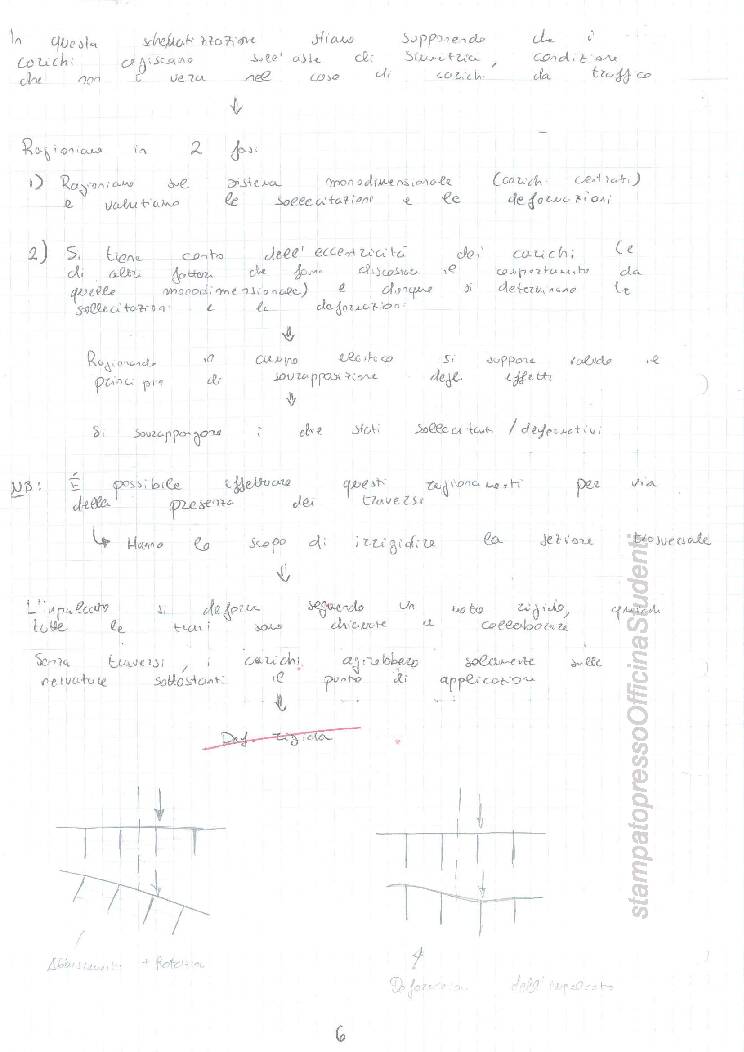 In questa schematizzazione stiamo supponendo che i
carichi agiscano sull'asse di simmetria, condizione
che non è vera nel caso di carichi da traffico
Ragioniamo in 2 fasi
1) Ragioniamo sul sistema monodimensionale (carichi centrati)
e valutiamo le sollecitazioni e le deformazioni
2) Si tiene conto dell'eccentricità dei carichi (e
di altri fattori che fanno discostare il comportamento da
quello monodimensionale) e dunque si determinano le
sollecitazioni e le deformazioni
Ragionando in campo elastico si suppone valido il
principio di sovrapposizione degli effetti
Si sovrappongono i due stati sollecitanti / deformativi
NB: È possibile effettuare questi ragionamenti per via
della presenza dei traversi
↳ Hanno lo scopo di irrigidire la sezione trasversale
L'impalcato si deforma seguendo un moto rigido, quindi
tutte le travi sono chiamate a collaborare
Senza traversi, i carichi agirebbero solamente sulle
nervature sottostanti il punto di applicazione
Def. rigida
Abbassamenti + Rotazione
Deformazioni dell'impalcato
6
stampatopressoOfficinaStudenti